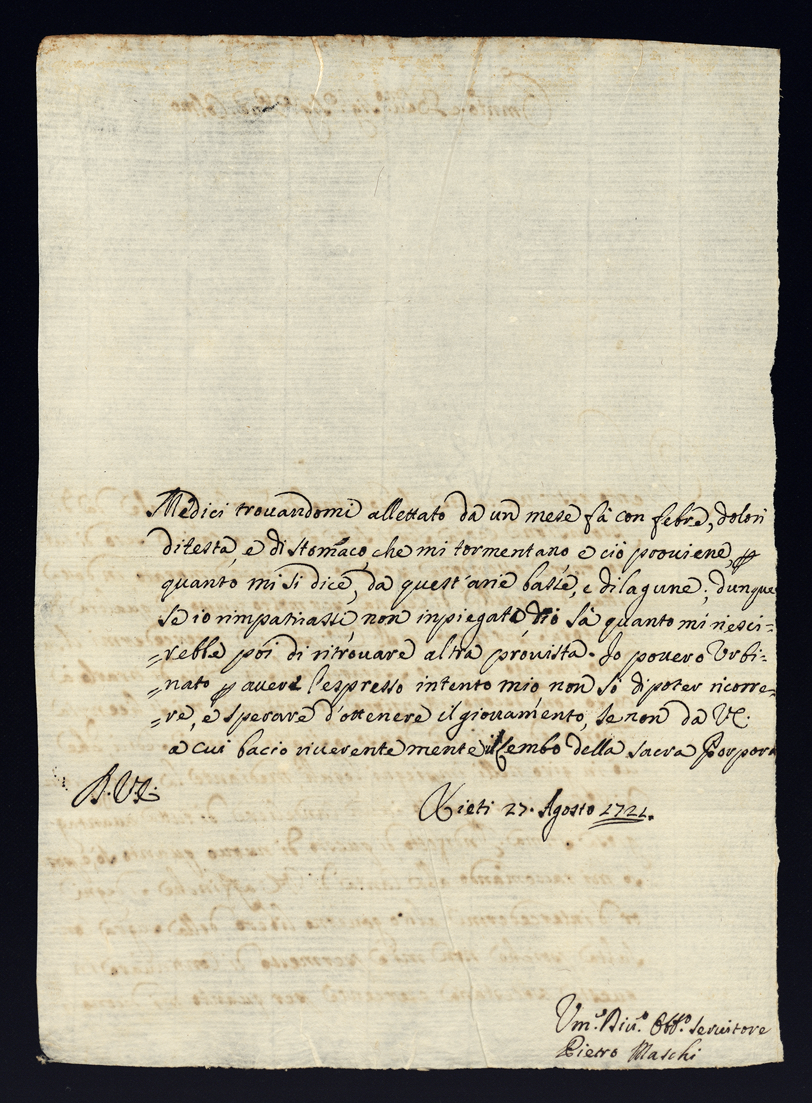 Medici trovandomi allettato da un mese fà con febre, dolori
di testa, e di stomaco, che mi tormentano e ciò proviene, p
quanto mi si dice, da quest'arie basse, e di lagune; dunque
se io rimpatriassi, non inpiegato Dio sà quanto mi riesci=
=rebbe poi di ritrovare altra provista. Io povero Urbi=
=nato p avere l'espresso intento mio non sò di poter ricorre=
=re, e sperare d'ottenere il giovamento, se non da VE:
a cui bacio riverentemente il lembo della sacra Porpora
D. VE:
Rieti 27. Agosto 1721.
Um.o Div.o Obb.o servitore
Pietro Maschi